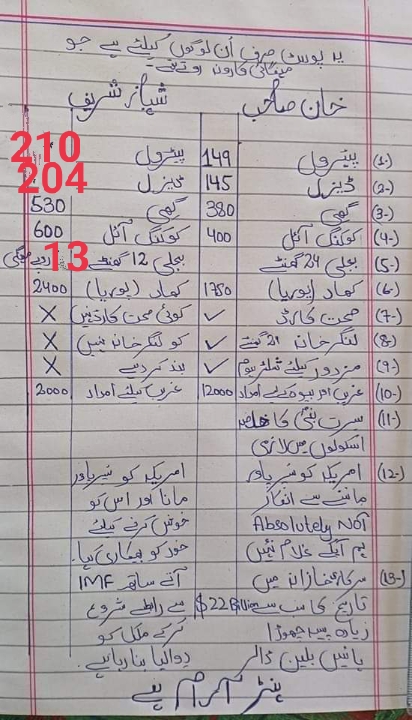 یہ پوسٹ صرف اُن لوگوں کیلئے ہے جو
مہنگائی کا رونا روتے تھے۔
خان صاحب شہباز شریف
(1-) پیٹرول 149 پیٹرول 210
(2-) ڈیزل 145 ڈیزل 204
(3-) گھی 380 گھی 530
(4-) کوکنگ آئل 400 کوکنگ آئل 600
(5-) بجلی 24 گھنٹے بجلی 12 گھنٹے 13 روپے مہنگی
(6-) کھاد (یوریا) 1750 کھاد (یوریا) 2400
(7-) صحت کارڈ ✓ کوئی صحت کارڈ نہیں X
(8-) لنگر خانہ 21 ✓ کو لنگر خانہ نہیں X
(9-) مزدور کیلئے شیلٹر ہوم ✓ بند کر دیے X
(10-) غریب اور بیوہ کیلئے امداد 12000 غریب کیلئے امداد 2000
(11-) سیرت نبیؐ کا
اسکولوں میں لازمی
(12-) امریکہ کو سپر پاور امریکہ کو سپر پاور
ماننے سے انکار مانا اور اس کو
Absolutely Not خوش کرنے کیلئے
ہم آپکے غلام نہیں خود کو بھکاری کہا۔
(13-) سرکاری خزانے میں آتے ساتھ IMF
تاریخ کا سب سے $22 Billion سے رابطے شروع
زیادہ پیسہ چھوڑا کر کے ملک کو
بائیس بلین ڈالر دیوالیہ بنا رہا ہے۔